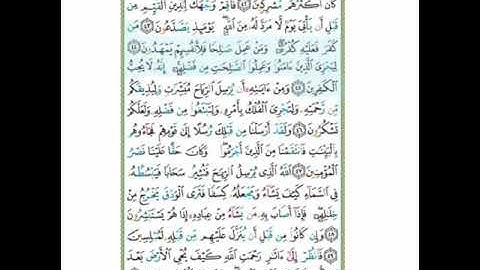 كَانَ أَكْثَرُهُم مُّشْرِكِينَ ﴿٤٢﴾ فَأَقِمْ وَجْهَكَ لِلدِّينِ ٱلْقَيِّمِ مِن
قَبْلِ أَن يَأْتِىَ يَوْمٌ لَّا مَرَدَّ لَهُۥ مِنَ ٱللَّهِ يَوْمَئِذٍ يَصَّدَّعُونَ ﴿٤٣﴾ مَن
كَفَرَ فَعَلَيْهِ كُفْرُهُۥ وَمَنْ عَمِلَ صَٰلِحًا فَلِأَنفُسِهِمْ يَمْهَدُونَ ﴿٤٤﴾
لِيَجْزِىَ ٱلَّذِينَ ءَامَنُوا۟ وَعَمِلُوا۟ ٱلصَّٰلِحَٰتِ مِن فَضْلِهِۦٓ إِنَّهُۥ لَا يُحِبُّ
ٱلْكَٰفِرِينَ ﴿٤٥﴾ وَمِنْ ءَايَٰتِهِۦٓ أَن يُرْسِلَ ٱلرِّيَاحَ مُبَشِّرَٰتٍ وَلِيُذِيقَكُم
مِّن رَّحْمَتِهِۦ وَلِتَجْرِىَ ٱلْفُلْكُ بِأَمْرِهِۦ وَلِتَبْتَغُوا۟ مِن فَضْلِهِۦ وَلَعَلَّكُمْ
تَشْكُرُونَ ﴿٤٦﴾ وَلَقَدْ أَرْسَلْنَا مِن قَبْلِكَ رُسُلًا إِلَىٰ قَوْمِهِمْ فَجَآءُوهُم
بِٱلْبَيِّنَٰتِ فَٱنتَقَمْنَا مِنَ ٱلَّذِينَ أَجْرَمُوا۟ وَكَانَ حَقًّا عَلَيْنَا نَصْرُ
ٱلْمُؤْمِنِينَ ﴿٤٧﴾ ٱللَّهُ ٱلَّذِى يُرْسِلُ ٱلرِّيَٰحَ فَتُثِيرُ سَحَابًا فَيَبْسُطُهُۥ
فِى ٱلسَّمَآءِ كَيْفَ يَشَآءُ وَيَجْعَلُهُۥ كِسَفًا فَتَرَى ٱلْوَدْقَ يَخْرُجُ مِنْ
خِلَٰلِهِۦ فَإِذَآ أَصَابَ بِهِۦ مَن يَشَآءُ مِنْ عِبَادِهِۦٓ إِذَا هُمْ يَسْتَبْشِرُونَ
﴿٤٨﴾ وَإِن كَانُوا۟ مِن قَبْلِ أَن يُنَزَّلَ عَلَيْهِم مِّن قَبْلِهِۦ لَمُبْلِسِينَ
﴿٤٩﴾ فَٱنظُرْ إِلَىٰٓ ءَاثَٰرِ رَحْمَتِ ٱللَّهِ كَيْفَ يُحْىِ ٱلْأَرْضَ بَعْدَ